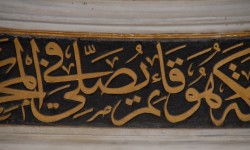 وهو قائم يصلي في المحر